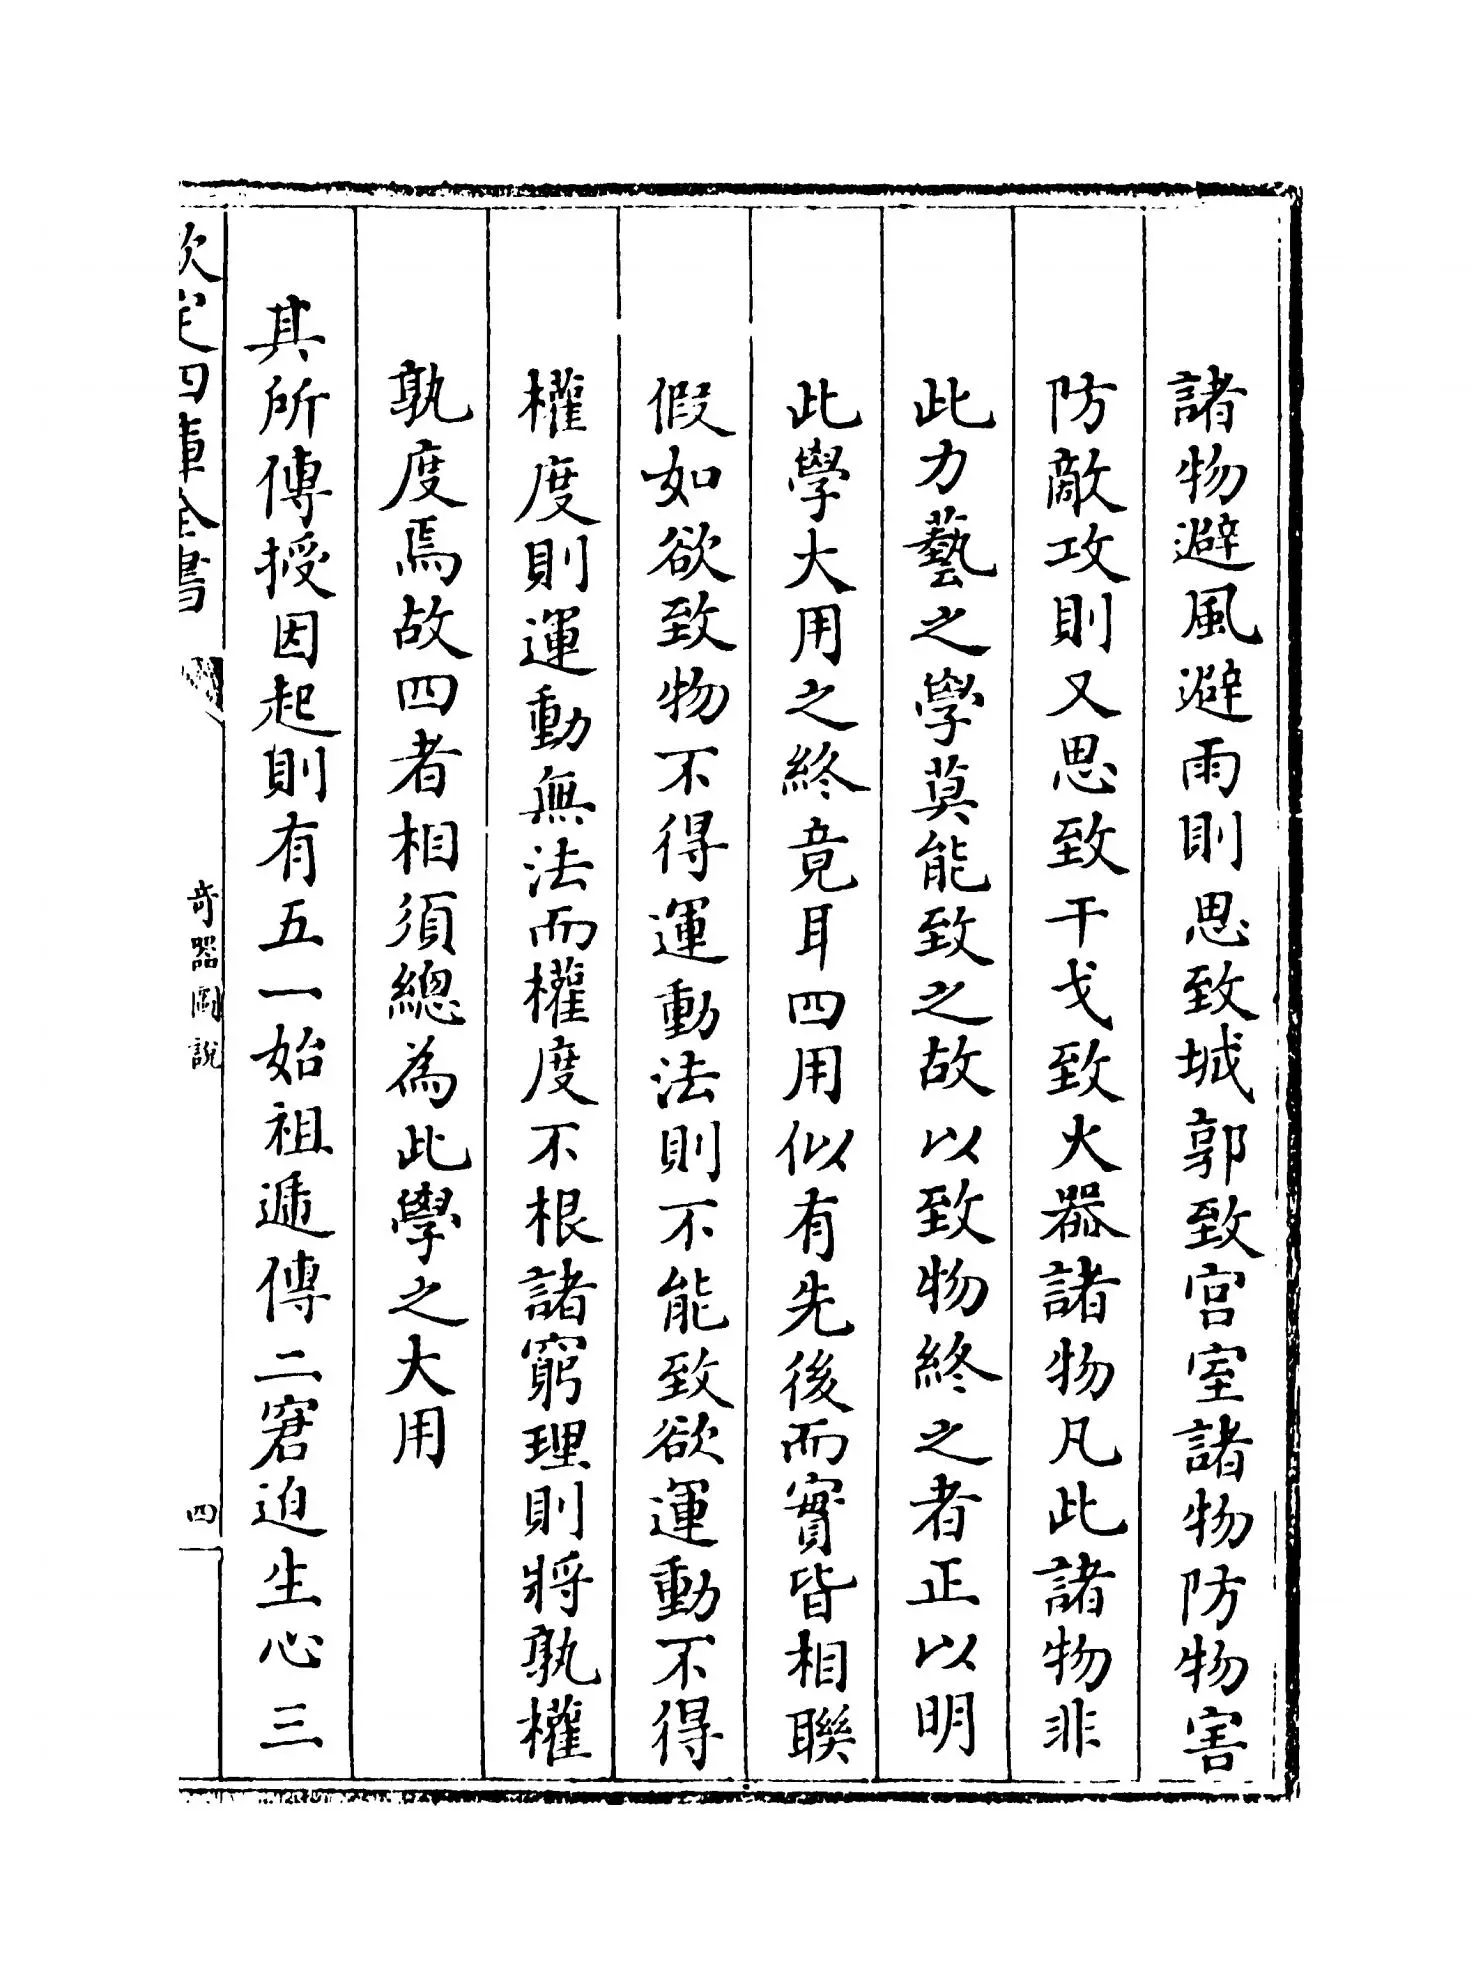 諸物避風避雨則思致城郭致宫室諸物防物害
防敵攻則又思致干戈致火器諸物凡此諸物非
此力藝之學莫能致之故以致物終之者正以明
此學大用之終竟耳四用似有先後而實皆相聯
假如欲致物不得運動法則不能致欲運動不得
權度則運動無法而權度不根諸窮理則將孰權
孰度焉故四者相須總為此學之大用
其所傳授因起則有五一始祖遞傳二窘迫生心三
欽定四庫全書
奇器圖說
四